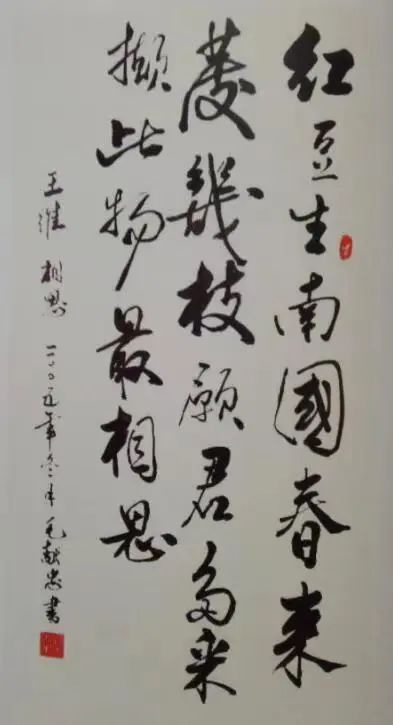 红豆生南國春来
發幾枝願君多采
撷此物最相思
王维 相思 二〇〇五年冬 毛献忠書